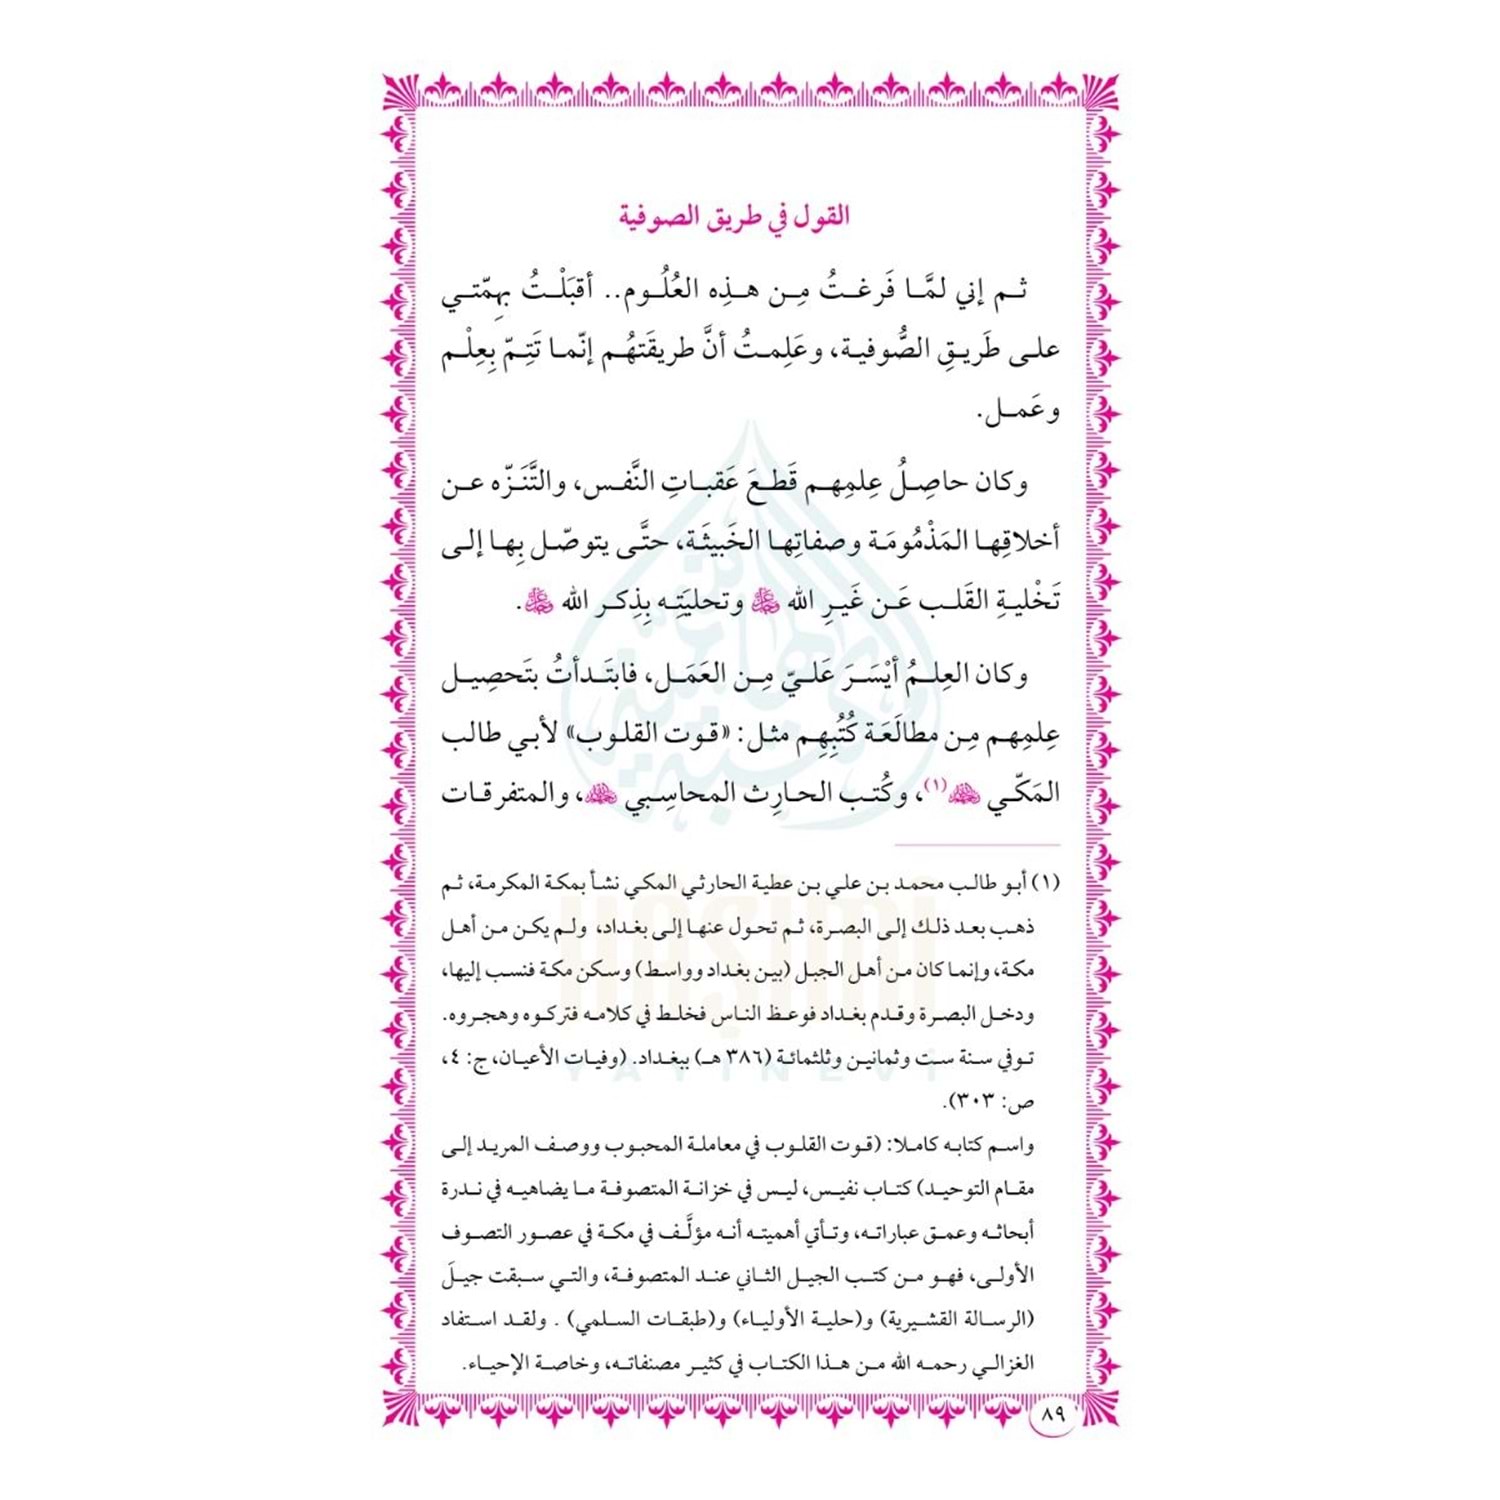 القول في طريق الصوفية
ثم إني لمَّا فَرغتُ مِن هذِه العُلُوم.. أقبَلْتُ بهِمّتي
على طَريقِ الصُّوفية، وعَلِمتُ أنَّ طريقَتهُم إنّما تَتِمّ بِعِلْم
وعَمل.
وكان حاصِلُ عِلمِهم قَطعَ عَقباتِ النَّفس، والتَّنَزّه عن
أخلاقِها المَذْمُومَة وصفاتِها الخَبيثَة، حتَّى يتوصّل بِها إلى
تَخْليةِ القَلب عَن غَيرِ الله ﷿ وتحليَتِه بِذِكر الله ﷿.
وكان العِلمُ أيْسَرَ عَليّ مِن العَمَل، فابتَدأتُ بتَحصِيل
عِلمِهم مِن مطالَعَة كُتُبِهِم مثل: «قوت القلوب» لأبي طالب
المَكّي ﵀(١)، وكُتب الحارِث المحاسِبي ﵀، والمتفرقات
(١) أبو طالب محمد بن علي بن عطية الحارثي المكي نشأ بمكة المكرمة، ثم
ذهب بعد ذلك إلى البصرة، ثم تحول عنها إلى بغداد، ولم يكن من أهل
مكة، وإنما كان من أهل الجبل (بين بغداد وواسط) وسكن مكة فنسب إليها،
ودخل البصرة وقدم بغداد فوعظ الناس فخلط في كلامه فتركوه وهجروه.
توفي سنة ست وثمانين وثلثمائة (٣٨٦ هـ) ببغداد. (وفيات الأعيان، ج: ٤،
ص: ٣٠٣).
واسم كتابه كاملا: (قوت القلوب في معاملة المحبوب ووصف المريد إلى
مقام التوحيد) كتاب نفيس، ليس في خزانة المتصوفة ما يضاهيه في ندرة
أبحاثه وعمق عباراته، وتأتي أهميته أنه مؤلَّف في مكة في عصور التصوف
الأولى، فهو من كتب الجيل الثاني عند المتصوفة، والتي سبقت جيلَ
(الرسالة القشيرية) و(حلية الأولياء) و(طبقات السلمي) . ولقد استفاد
الغزالي رحمه الله من هذا الكتاب في كثير مصنفاته، وخاصة الإحياء.
٨٩
HAŞİMİ
YAYINEVİ